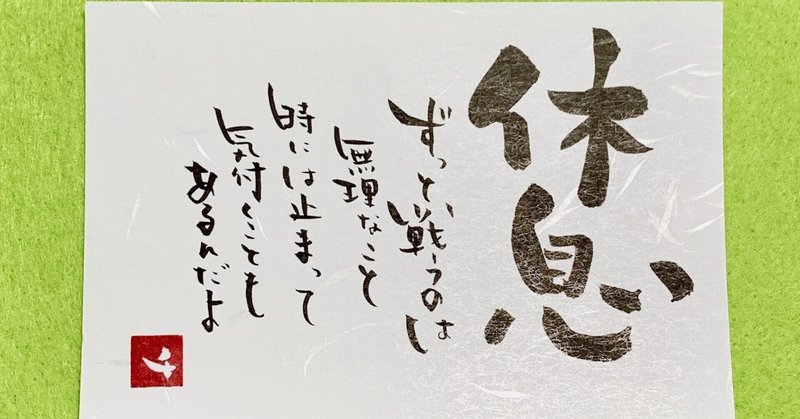 休息
ずっと戦うのは
無理なこと
時には止まって
気付くことも
あるんだよ
千